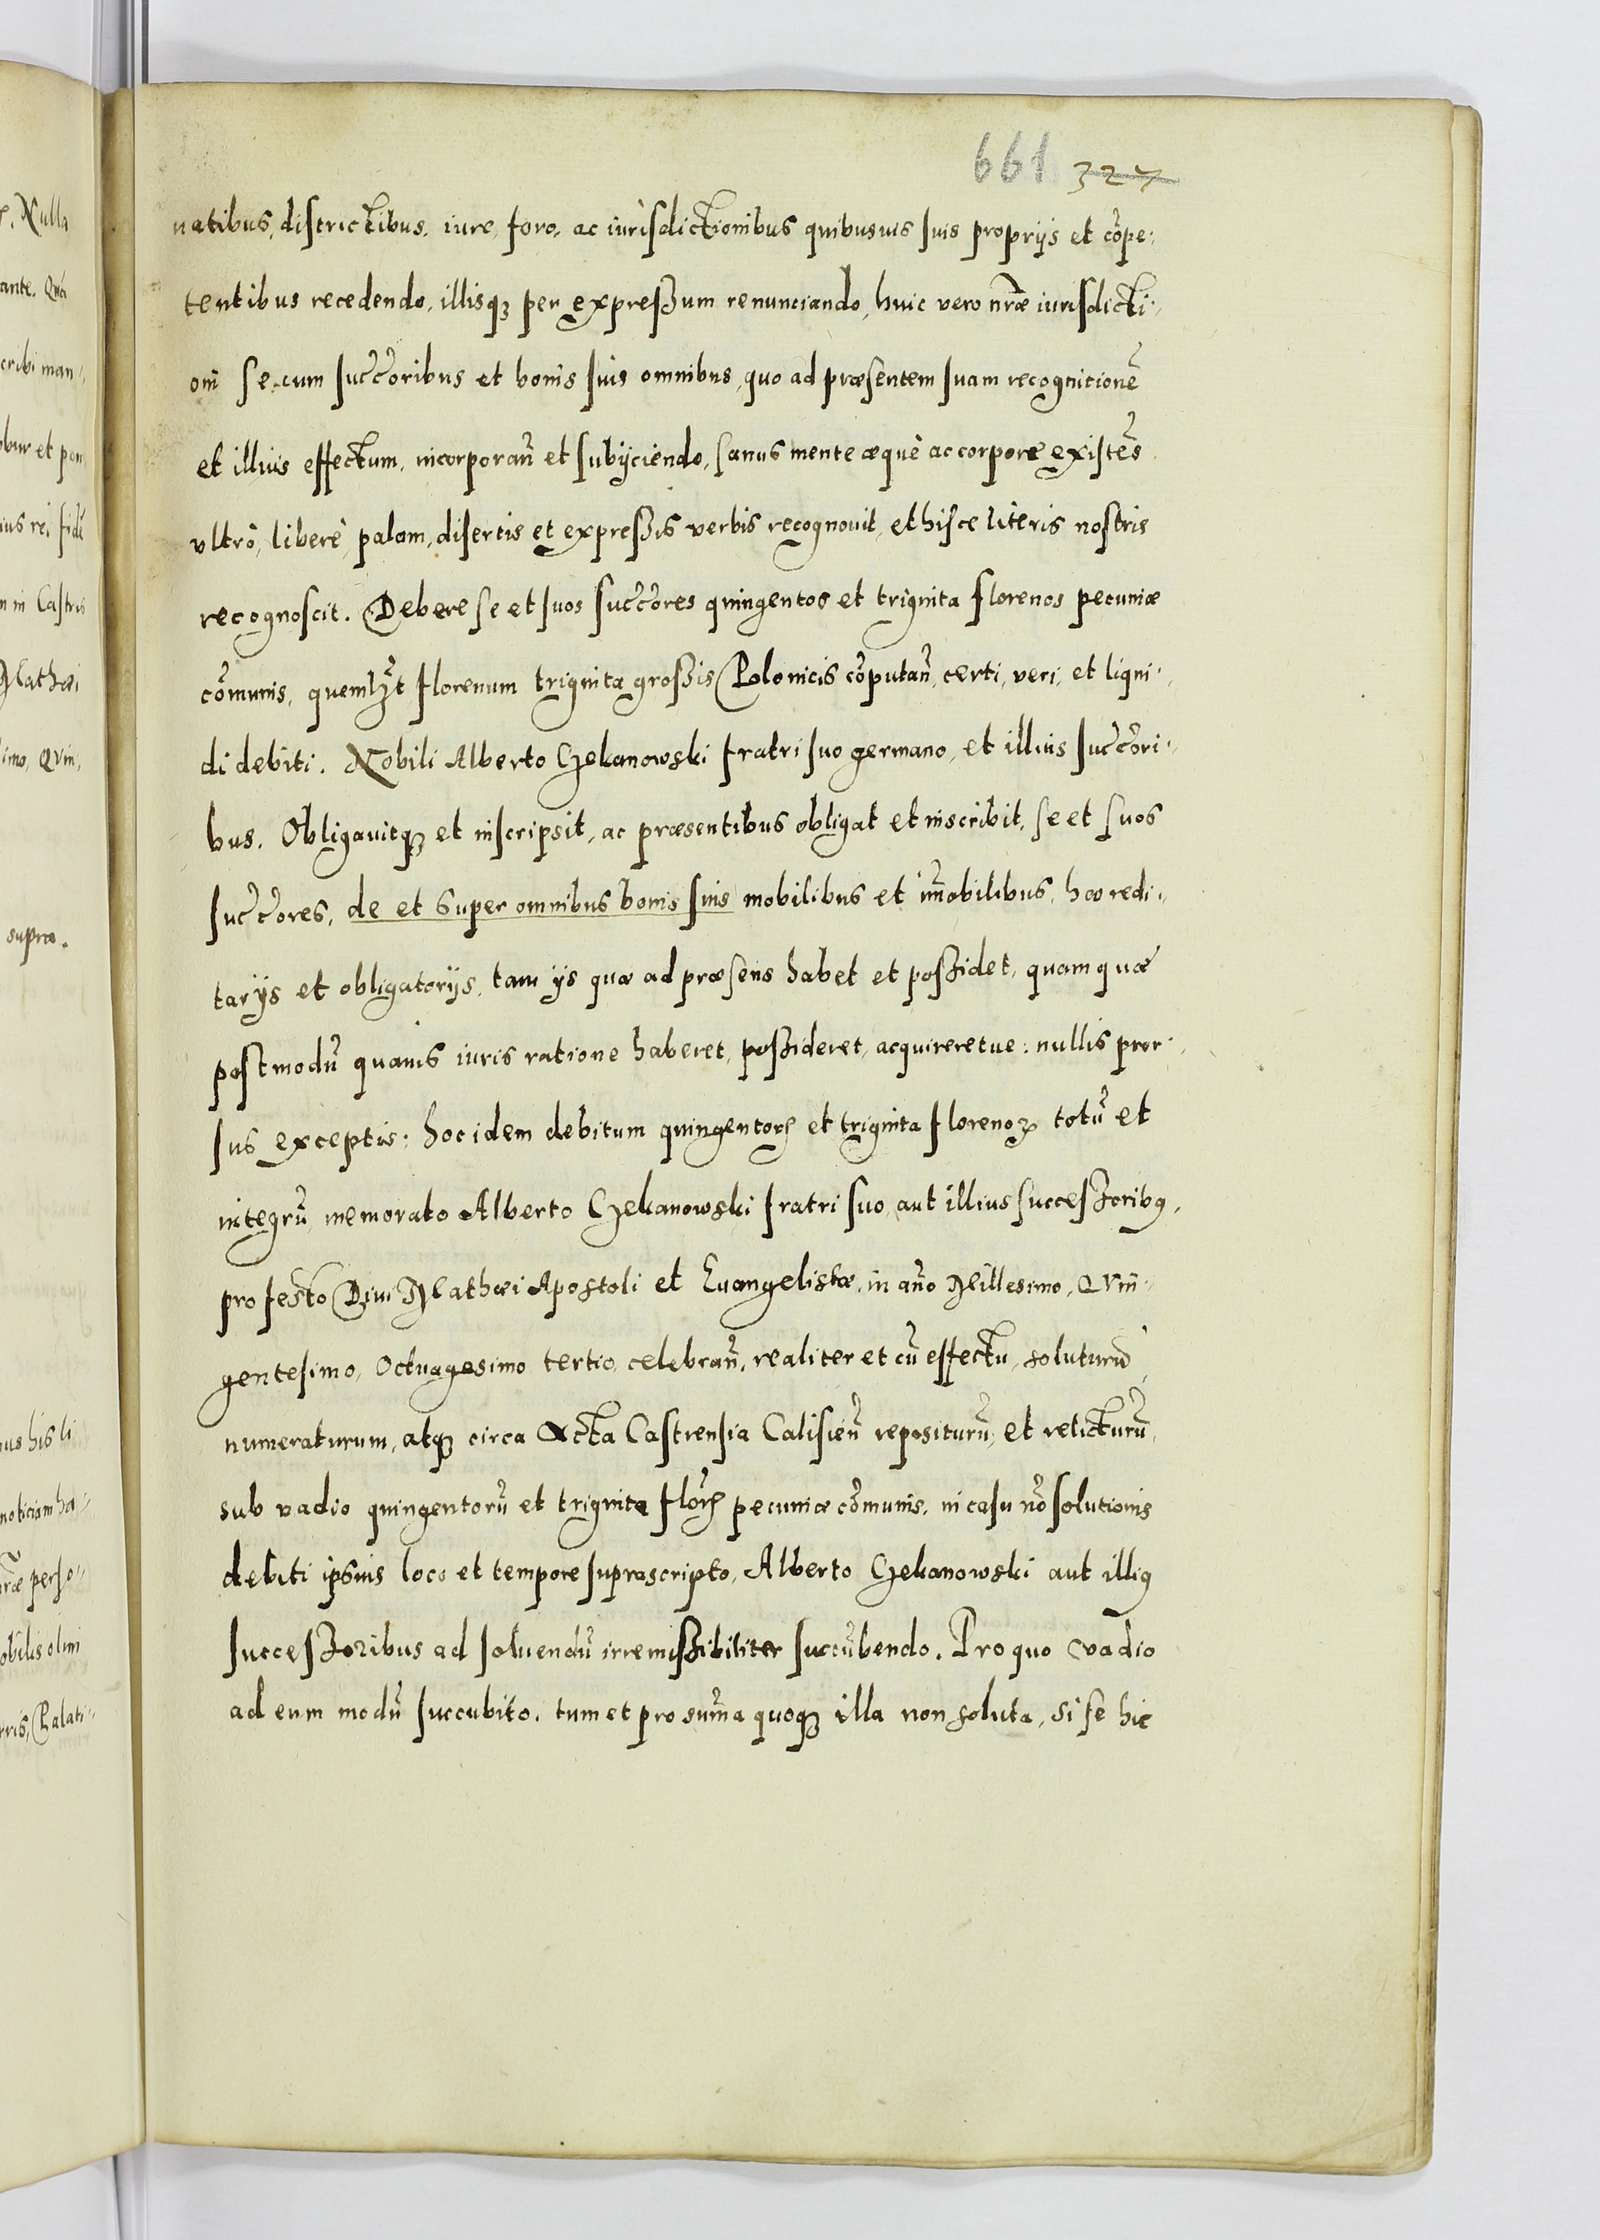 661 327
natibus, districtibus, iure, foro, ac iurisdictionibus quibusuis suis proprijs et cōpe:
tentibus recedendo, illisqȝ per expressum renunciando, huic vero nrae iurisdicti:
oni se cum succ̄oribus et bonis suis omnibus, quo ad praesentem suam recognitionē
et illius effectum, incorporan̄ et subijciendo, sanus mente aequè ac corpore existēs
vltrò, liberè, palam, disertis et expressis verbis recognouit, et hisce literis nostris
recognoscit. Debere se et suos succ̄ores quingentos et triginta florenos pecuniae
cōmunis, quemlȝt florenum triginta grossis Polonicis cōputan̄, certi, veri, et liqui:
di debiti. Nobili Alberto Czekanowski fratri suo germano, et illius succ̄ori:
bus. Obligauitqȝ et inscripsit, ac praesentibus obligat et inscribit, se et suos
succ̄ores, de et super omnibus bonis suis mobilibus et im̄obilibus, haeredi:
tarijs et obligatorijs, tam ijs quae ad praesens habet et possidet, quam quae
postmodū quauis iuris ratione haberet, possideret, acquireretue: nullis pror:
sus exceptis: hoc idem debitum quingentorꝝ et triginta florenoꝝ totū et
integrū memorato Alberto Czekanowski fratri suo, aut illius successoribꝰ,
pro festo Diui Mathaei Apostoli et Euangelistae, in an̄o Millesimo, Quin:
gentesimo, Octuagesimo tertio, celebran̄, realiter et cū effectu, soluturū,
numeraturum, atqȝ circa Acta Castrensia Calisien̄ repositurū, et relicturū,
sub vadio quingentorū et triginta florꝝ pecuniae cōmunis, in casu nō solutionis
debiti ipsius loco et tempore suprascripto, Alberto Czekanowski aut illiꝰ
successoribus ad soluendū irremissibiliter succūbendo. Pro quo vadio
ad eum modū succubito, tum et pro sum̄a quoqȝ illa non soluta, si se hic